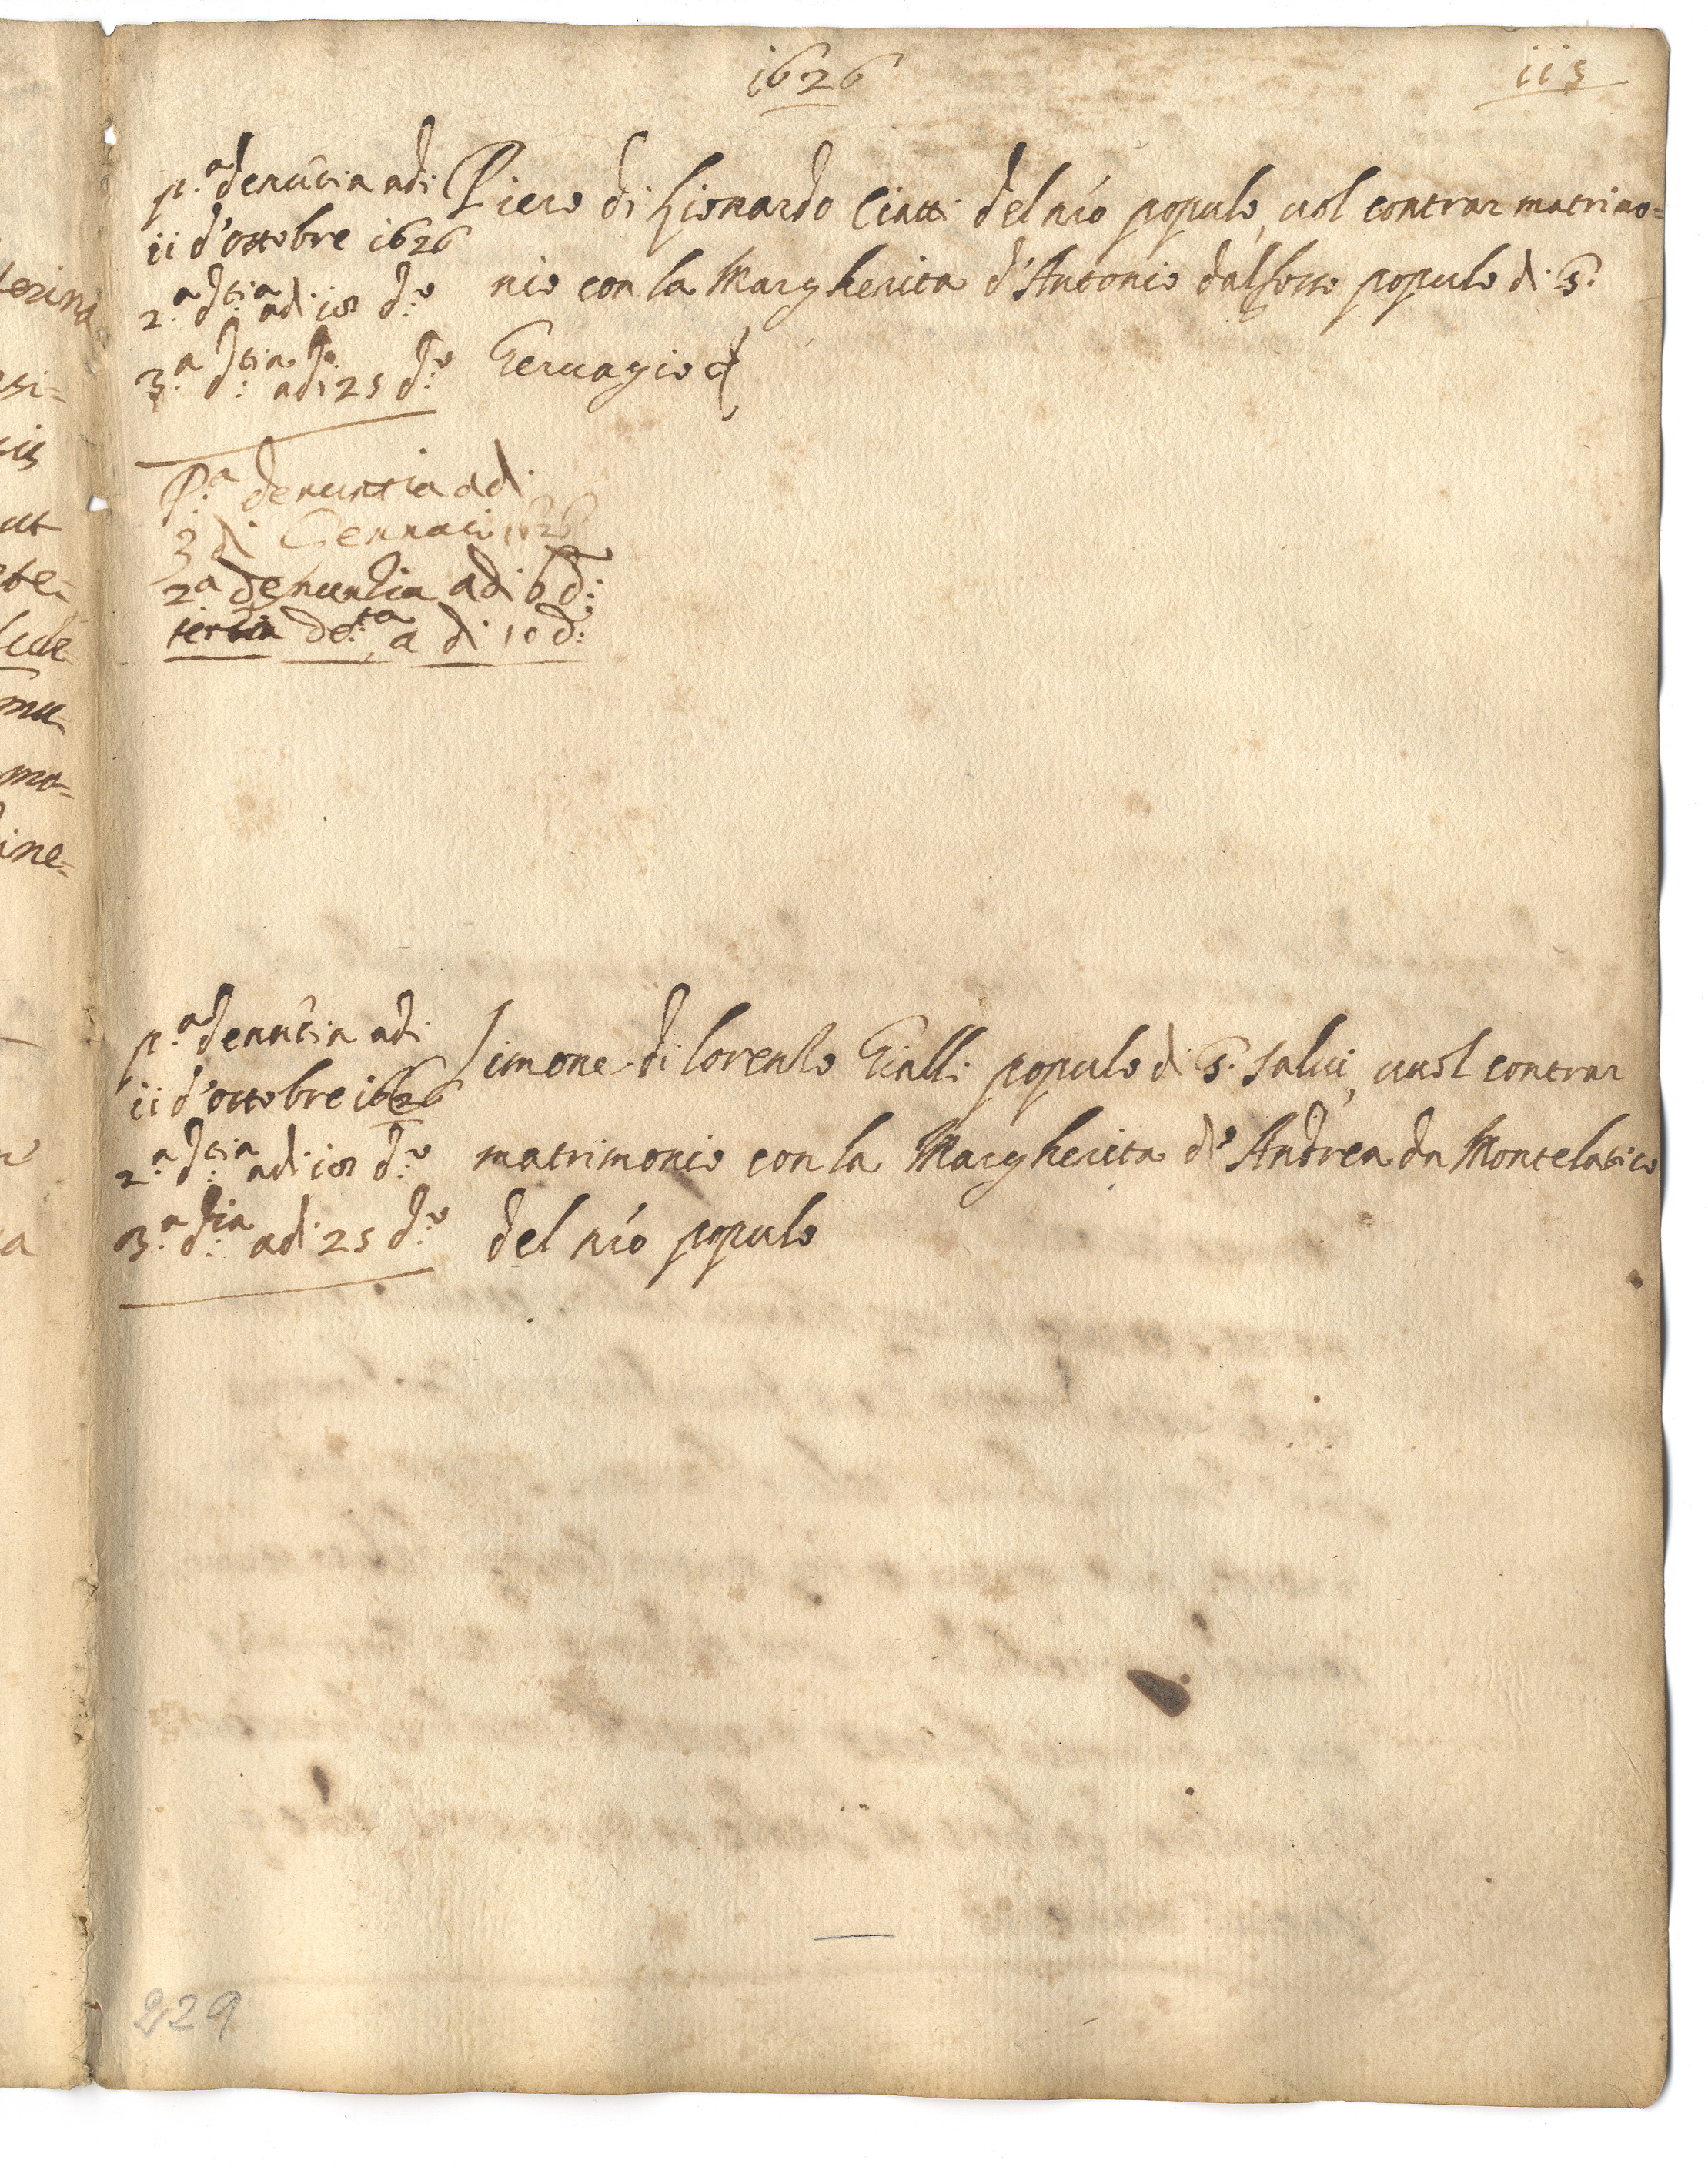 1626
115
p.a denũtia adi
ii d'ottobre 1626
2.a d.tia adi 18 d.o
3.a d.tia adi 25 d.o
Piero di Lionardo Ciatti del nr̃o populo, uol contrar matrimo=
nio con la Margherita d'Antonio dalfosso populo di S.
Geruagio
P.a denuntia adi
3 di Gennaio 1626
2a denuntia adi 6 d:
tertia de:ta a di 10 d:
p.a denũtia adi
ii d'ottobre 1626
2.a d.tia adi 18 d.o
3.a d.tia adi 25 d.o
Simone di lorenzo Gialli populo di S. Salui, uuol contrar
matrimonio con la Margherita d'Andrea da Montelatico
del nr̃o populo
229